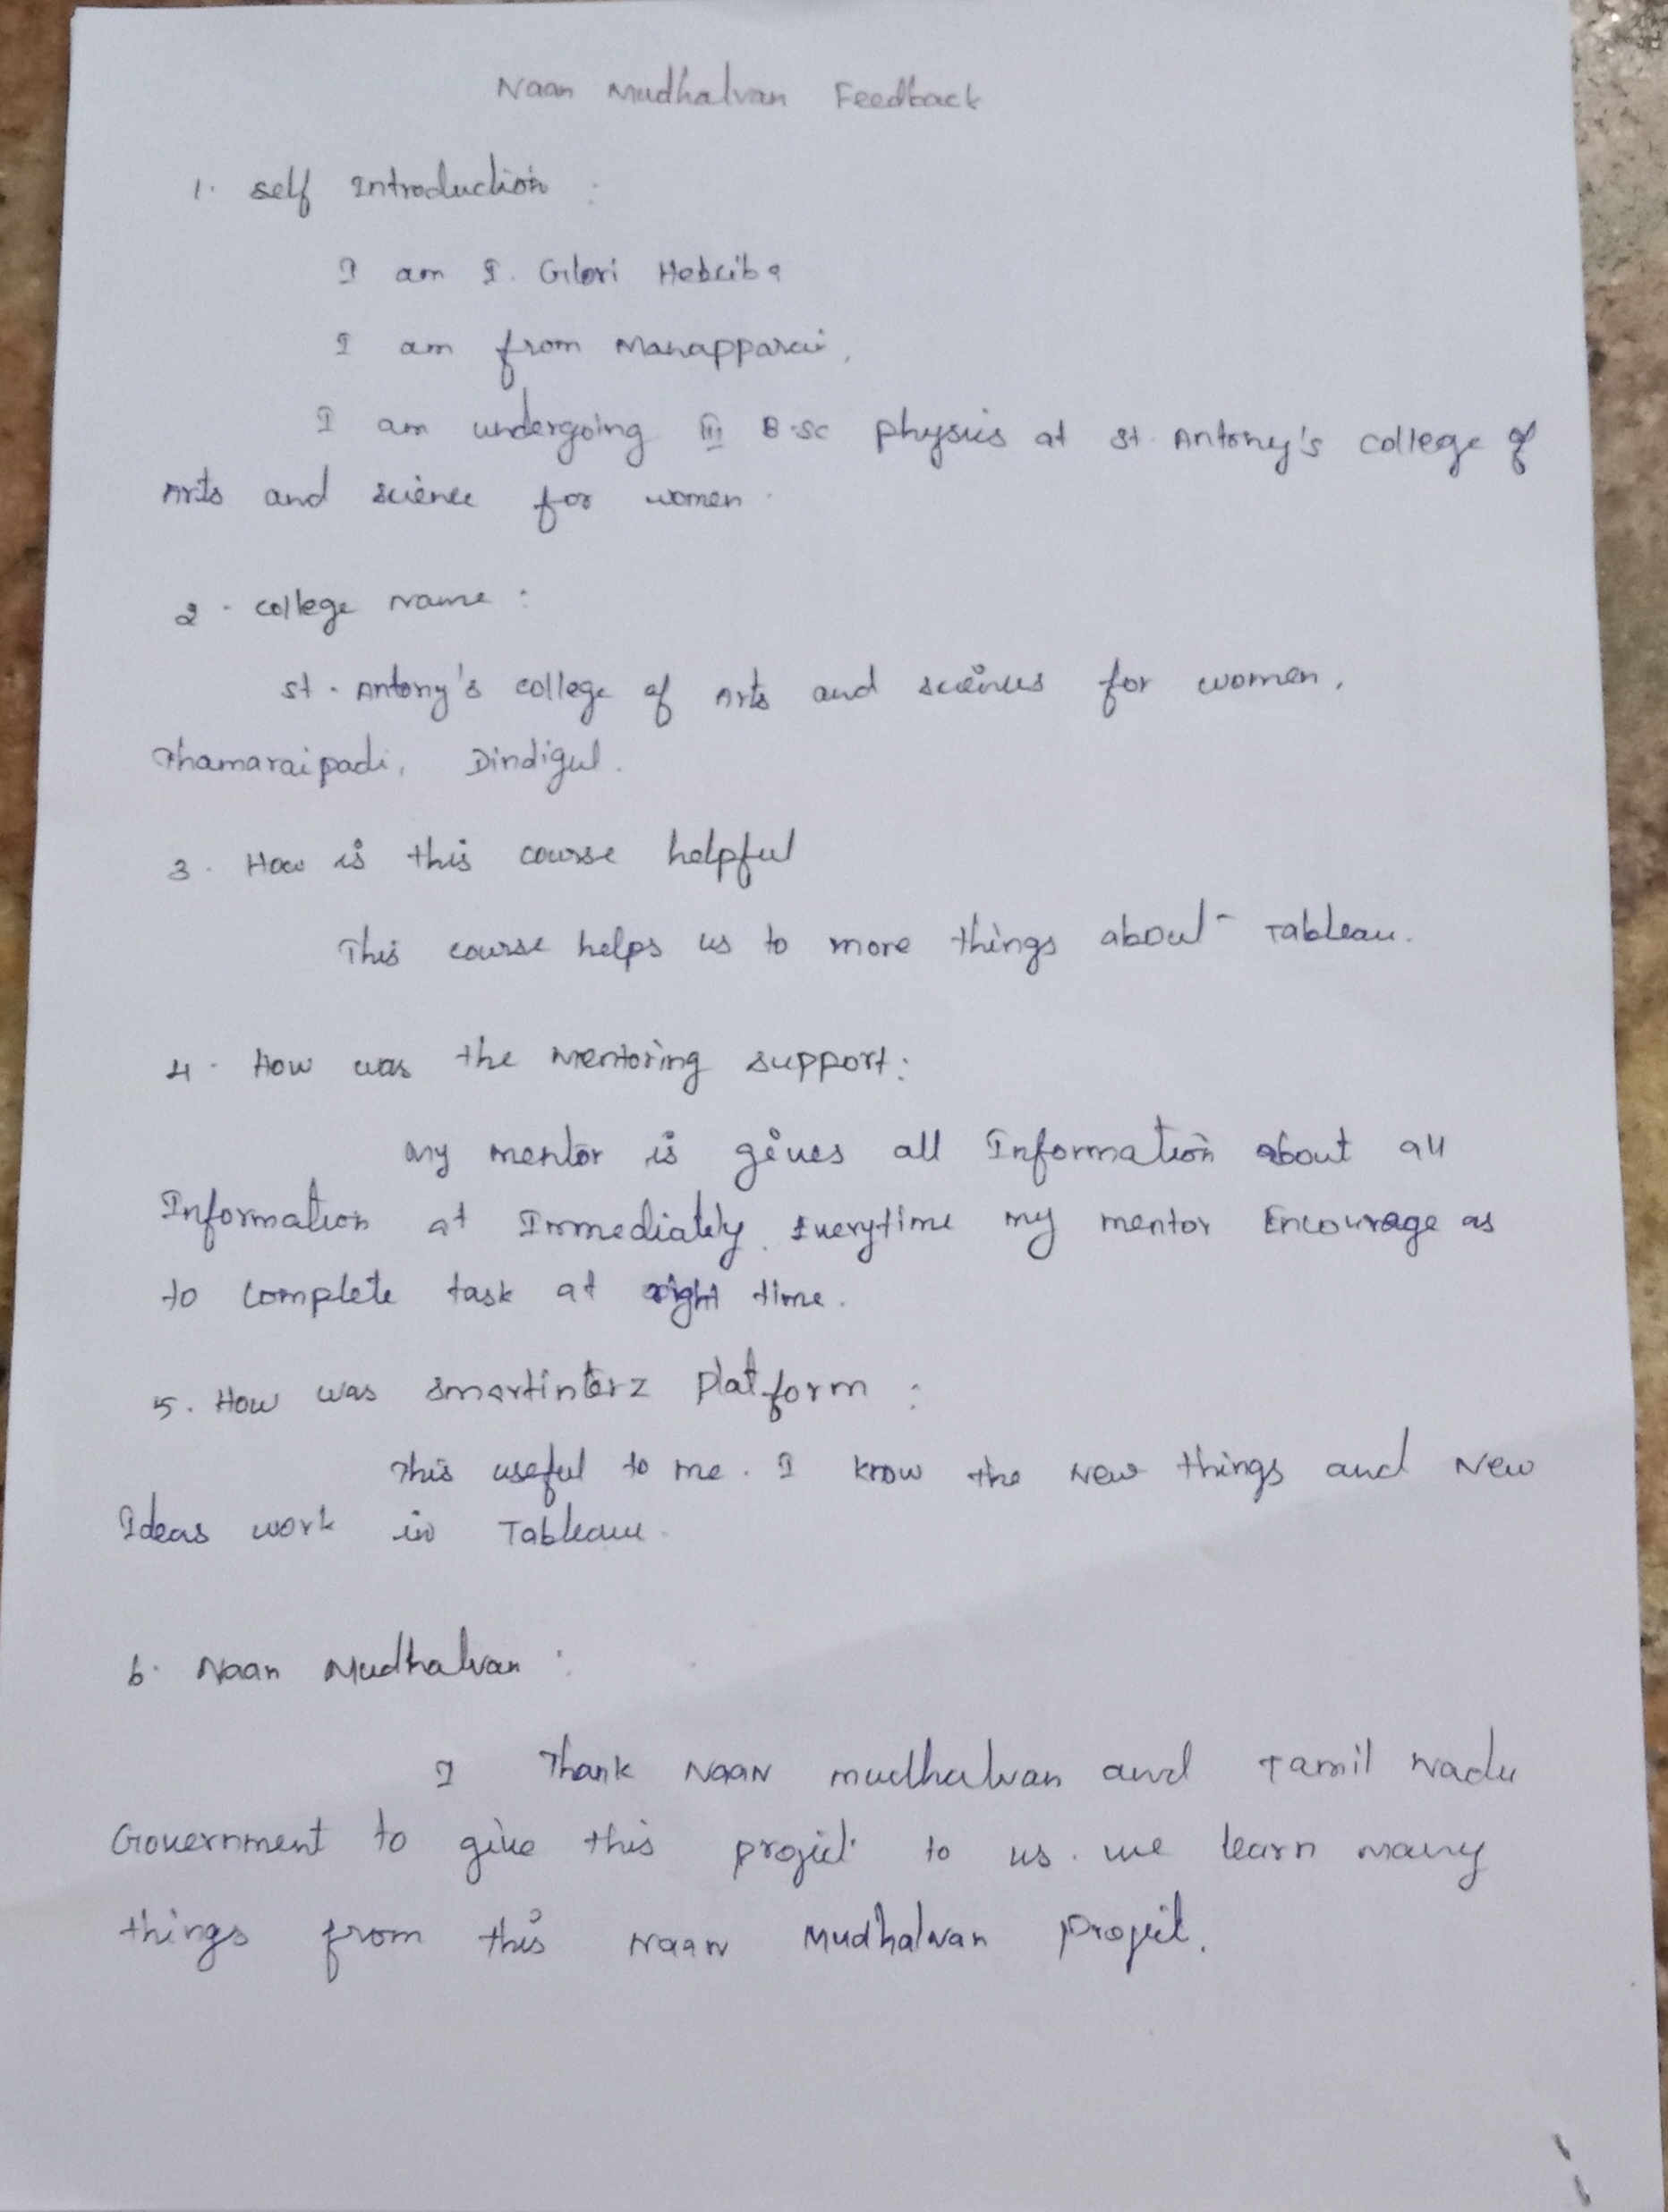 Naan Mudhalvan Feedback
1. self Introduction :
I am I. Glori Hebciba
I am from Manapparai.
I am undergoing III B.sc physics at st. Antony's college of
Arts and science for women.
2. college Name :
st. Antony's college of Arts and sciences for women,
Thamaraipadi, Dindigul.
3. How is this course helpful
This course helps us to more things about Tableau.
4. How was the Mentoring support:
my mentor is gives all Information about all
Information at Immediately. Everytime my mentor Encourage as
to complete task at right time.
5. How was smartinterz platform :
This useful to me. I know the New things and New
Ideas work in Tableau.
6. Naan Mudhalvan :
I Thank Naan mudhalvan and Tamil Nadu
Government to give this project to us. we learn many
things from this Naan Mudhalvan project.